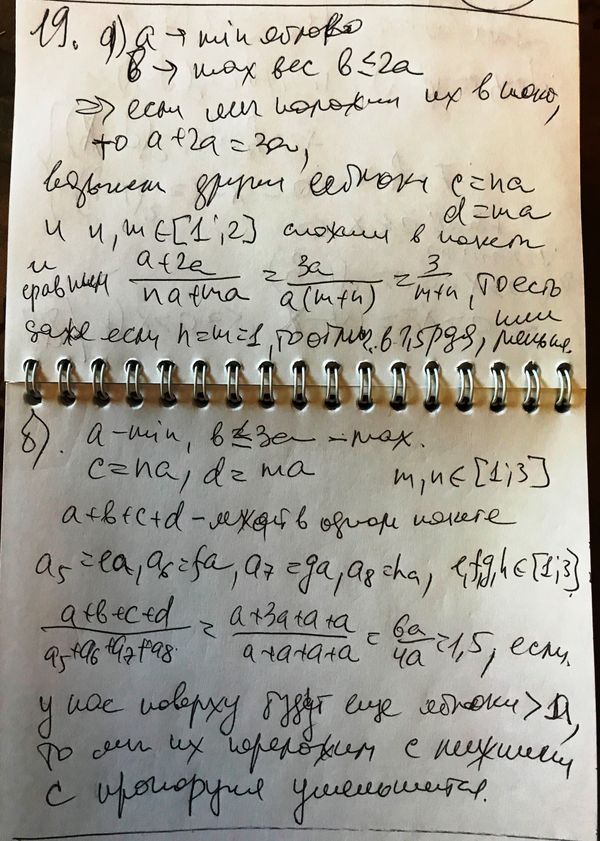 19. а) a → min яблоко
b → max вес b ≤ 2a
⇒ если мы положим их в
то a + 2a = 3a,
возьмем другие яблоки c = na
d = ma
и n, m ∈ [1; 2] сложим в пакет
и
сравним (a+2a)/(na+ma) = 3a/(a(m+n)) = 3/(m+n), то есть
даже если n = m = 1, то отлич. в 1,5 раза, или меньше.
б). a – min, b ≤ 3a – max.
c = na, d = ma m, n ∈ [1; 3]
a + b + c + d – лежат в одном пакете
a5 = ea, a6 = fa, a7 = ga, a8 = ha, e,f,g,h ∈ [1;3].
(a+b+c+d)/(a5+a6+a7+a8) = (a+3a+a+a)/(a+a+a+a) = 6a/4a = 1,5, если
у нас поверху будут еще яблоки > 1a,
то мы их переложим с нижними
с пропорция уменьшится.